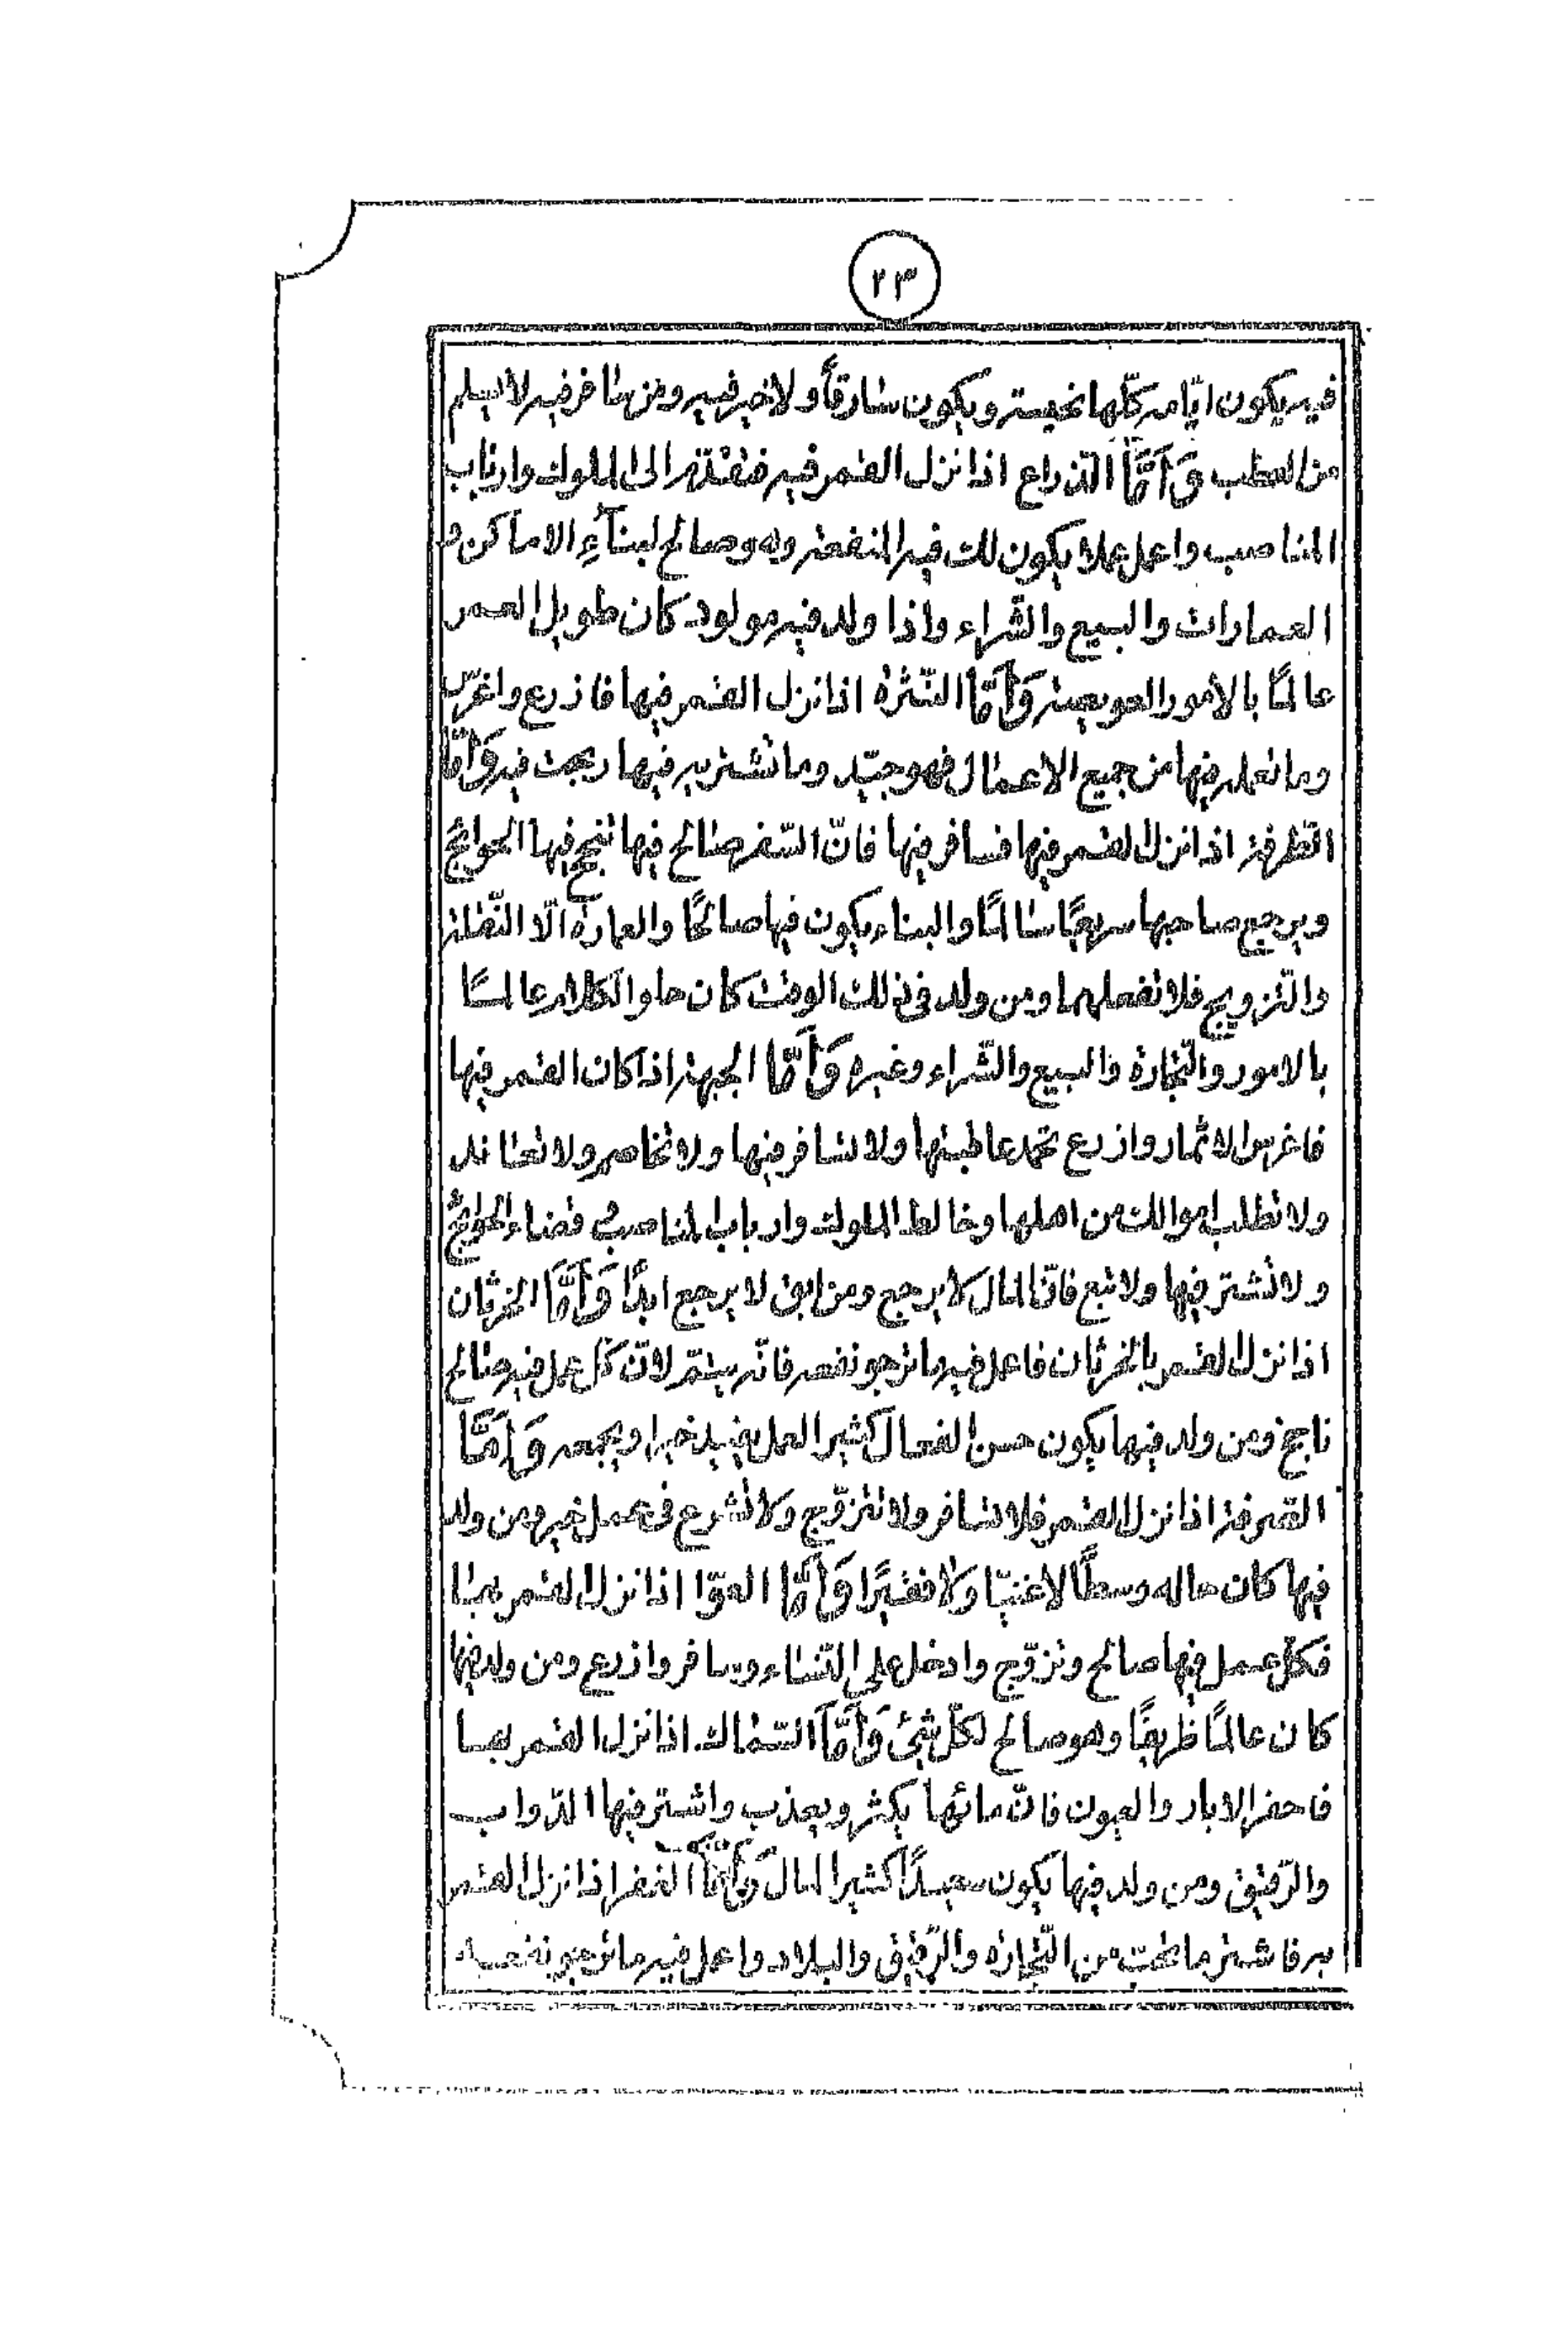 ٢٣
فيه يكون ايّامه كلّها نحيسة ويكون سارقاً ولا خير فيه ومن سافر فيه لا يسلم
من العطب وَأمَّا الذّراع اذا نزل القمر فيه فتقدّم الى الملوك وارباب
المناصب واعمل عملا يكون لك فيه المنفعة وهو صالح لبنآءِ الاماكن و
العمارات والبيع والشّراء واذا ولد فيه مولود كان طويل العمر
عالمًا بالامور العويصة وَأَمَّا النّثرة اذا نزل القمر فيها فازرع واغرس
وما تعمله فيها من جميع الاعمال فهو جيّد وما تشتريه فيها ربحت فيه وَأَمَّا
الطّرفة اذا نزل القمر فيها فسافر فيها فانّ السّفر صالح فيها تنجح فيها الحوائج
ويرجع صاحبها سريعًا سالمًا والبناء يكون فيها صالحًا والعمارة الّا النّقلة
والتّزويج فلا تفعلهما ومن ولد فى ذلك الوقت كان حلو الكلام عالمًا
بالامور والتّجارة والبيع والشّراء وغيره وَأَمَّا الجبهة اذا كان القمر فيها
فاغرس الاثمار وازرع تحمد عاقبتها ولا تسافر فيها ولا تخاصم ولا تعاند
ولا تطلب اموالك من اهلها وخالط الملوك وارباب المناصب فى قضاء الحوائج
ولا تشتر فيها ولا تبع فانّ المال لا يرجع ومن ابق لا يرجع ابدًا وَأَمَّا الخرثان
اذا نزل القمر بالخرثان فاعمل فيه ما ترجو نفعه فانّه يتمّ لانّ كلّ عمل فيه صالح
ناجح ومن ولد فيها يكون حسن الفعال كثير العمل يفيد خيرا ويجمعه وَأَمَّا
الصّرفة اذا نزل القمر فلا تسافر ولا تتزوّج ولا تشرع فى عمل خير ومن ولد
فيها كان حاله وسطًا لا غنيّا ولا فقيرًا وَأَمَّا العوّا اذا نزل القمر بها
فكلّ عمل فيها صالح وتزوّج وادخل على النّساء وسافر وازرع ومن ولد فيها
كان عالمًا ظريفًا وهو صالح لكلّ شئ وَأَمَّا السّماك اذا نزل القمر بها
فاحفر الابار والعيون فانّ مائها يكثر ويعذب واشتر فيها الدّواب
والرّقيق ومن ولد فيها يكون سعيدًا كثير المال وَأَمَّا الغفر اذا نزل القمر
به فاشتر ما تحت من التّجارة والرّقيق والبلاد واعمل فيه ما